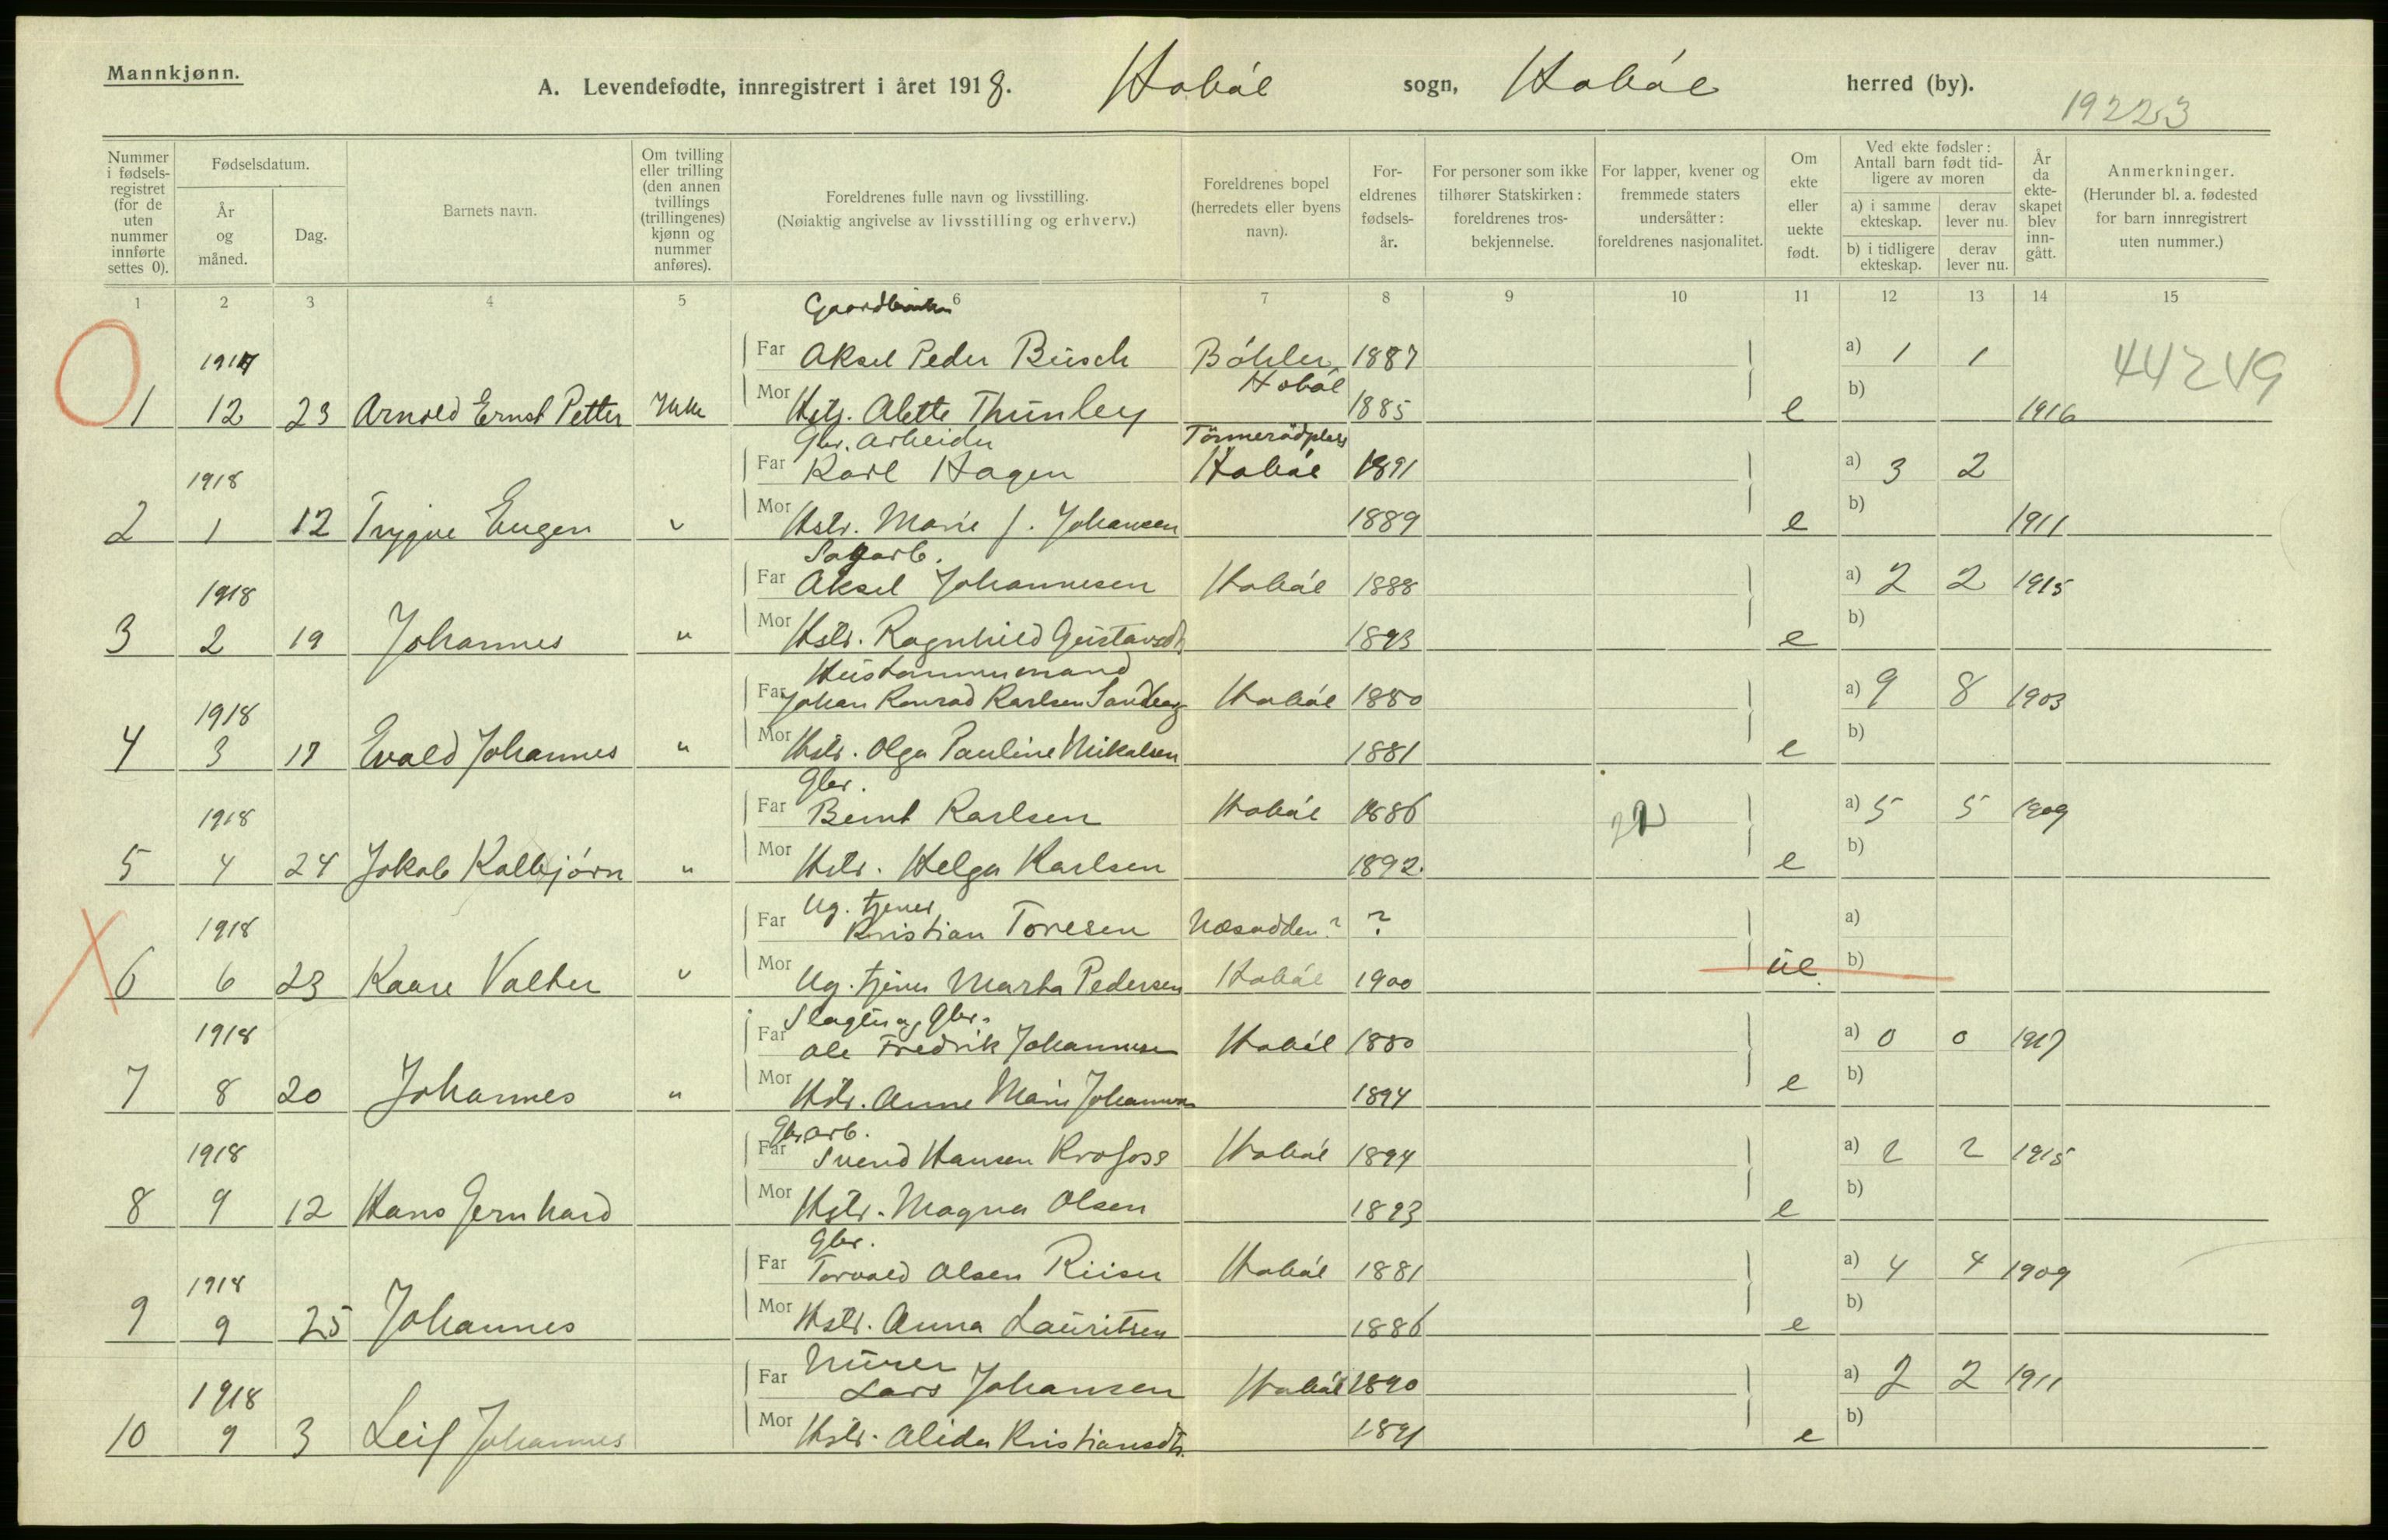 Mannkjønn.
A. Levendefødte, innregistrert i året 1918. Hobøl sogn, Hobøl herred (by).
19223
Nummer i fødselsregistret (for de uten nummer innførte settes 0).
Fødselsdatum.
År og måned.
Dag.
Barnets navn.
Om tvilling eller trilling (den annen tvillings (trillingenes) kjønn og nummer anføres).
Foreldrenes fulle navn og livsstilling.
(Nøiaktig angivelse av livsstilling og erhverv.)
Foreldrenes bopel (herredets eller byens navn).
Foreldrenes fødselsår.
For personer som ikke tilhører Statskirken: foreldrenes trosbekjennelse.
For lapper, kvener og fremmede staters undersåtter: foreldrenes nasjonalitet.
Om ekte eller uekte født.
Ved ekte fødsler: Antall barn født tidligere av moren
a) i samme ekteskap. derav lever nu.
b) i tidligere ekteskap. derav lever nu.
År da ekteskapet blev inngått.
Anmerkninger.
(Herunder bl. a. fødested for barn innregistrert uten nummer.)
1 2 3 4 5 6 7 8 9 10 11 12 13 14 15
Gaardbruker
1917 Far Aksel Peder Busch Bøhler 1887 a) 1 1 44249
Hobøl
1 12 23 Arnold Ernst Petter Ikke Mor Hstr. Alette Thunley 1885 e b) 1916
Gbr. arbeider
1918 Far Karl Hagen Hobøl 1891 a) 3 2
2 1 12 Trygve Eugen " Mor Hstr. Marie J. Johansen 1889 e b) 1911
Sagarb.
1918 Far Aksel Johannesen Hobøl 1888 a) 2 2 1915
3 2 19 Johannes " Mor Hstr. Ragnhild Gustavsdt. 1893 e b)
Hustømmermand
1918 Far Johan Konrad Karlsen Sandberg Hobøl 1880 a) 9 8 1903
4 3 17 Evald Johannes " Mor Hstr. Olga Pauline Nikolsen 1881 e b)
Gbr.
1918 Far Bernt Karlsen Hobøl 1886 a) 5 5 1909
5 4 24 Jakob Kolbjørn " Mor Hstr. Helga Karlsen 1892. e b)
Ug. tjener
1918 Far Kristian Toresen Næsodden? ? a)
6 6 23 Kaare Valter " Mor Ug. tjener Marta Pedersen Hobøl 1900 ue. b)
Slagter og Gbr.
1918 Far Ole Fredrik Johannesen Hobøl 1880 a) 0 0 1917
7 8 20 Johannes " Mor Hstr. Anne Marie Johannesen 1894 e b)
Gbrarb.
1918 Far Svend Hansen Krofoss Hobøl 1894 a) 2 2 1915
8 9 12 Hans Gernhard Mor Hstr. Magna Olsen 1893 e b)
Gbr.
1918 Far Torvald Olsen Riiser Hobøl 1881 a) 4 4 1909
9 9 25 Johannes Mor Hstr. Anna Lauritsen 1886 e b)
Murer
1918 Far Lars Johansen Hobøl 1890 a) 2 2 1911
10 9 3 Leif Johannes Mor Hstr. Alida Kristiansdtr. 1891 e b)